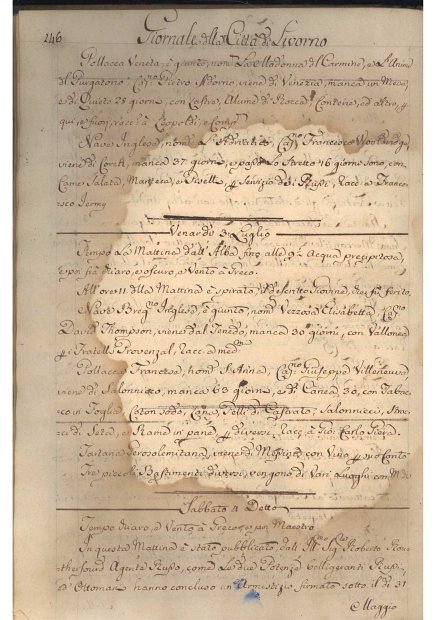 246 Giornale della Città di Livorno
Pollacca Veneta, è giunto, nom.ª La Madonna del Carmine, e L'Anime
del Purgatorio, Cap.º Pietro Adorno, viene di Venezia, manca un Mese,
e di 28 giorni, con Lastre, Allume di Rocca, Conterie, ed altro, p
qui, e fuori, racc.ª Leopoldi, e Comp.
Nave Inglesa, nom.ª Cap.no Francesco
viene di manca 37 giorni, e passò Lo Stretto 16 giorni sono, con
Carne Salata, e p Servizio de' Russi, Racc. a Frances-
co Jermy
Venardì 3 Luglio
Tempo La Mattina dall'Alba fino alle 9 Acqua precipitosa,
e poi fra chiaro, e oscuro e Vento à Greco.
All'ore 11 della Mattina è spirato, il descritto Giovine, che fù ferito.
Nave Inglesa, è giunto, nom.ª Vezzosa Elisabetta, Cap.no
David Thompson, viene dal Tenedo, manca 30 giorni, con Vallonea
p i Fratelli Provenzal, racc. a med.mi
Pollacca Francesa, nom.ª S. Anna, Cap.no Giuseppe Villeneuva
viene di Salonnicco, manca 63 giorni, e di Canea 30, con Tabac-
co in Foglia, Coton Sodo, Pelli di Castrato, Salonnicci, Strac-
ci di Seta, e Rame in pane, p diversi, Racc. a Carlo
Tartana Gerosolemitana, viene di con Vino p suo Conto
Tre piccoli Bastimenti diversi, vengono di Varj Luoghi con
Sabbato 4 Detto
Tempo chiaro, e Vento à Greco, e poi Maestro
In questa Mattina è stato pubblicato, dall' Ill.mo Sig.re Roberto Rou-
therfourd Agente Russo, come Le due Potenze belligeranti Russi,
ed Ottomani hanno concluso un Armistizio firmato sotto il dì 31
Maggio